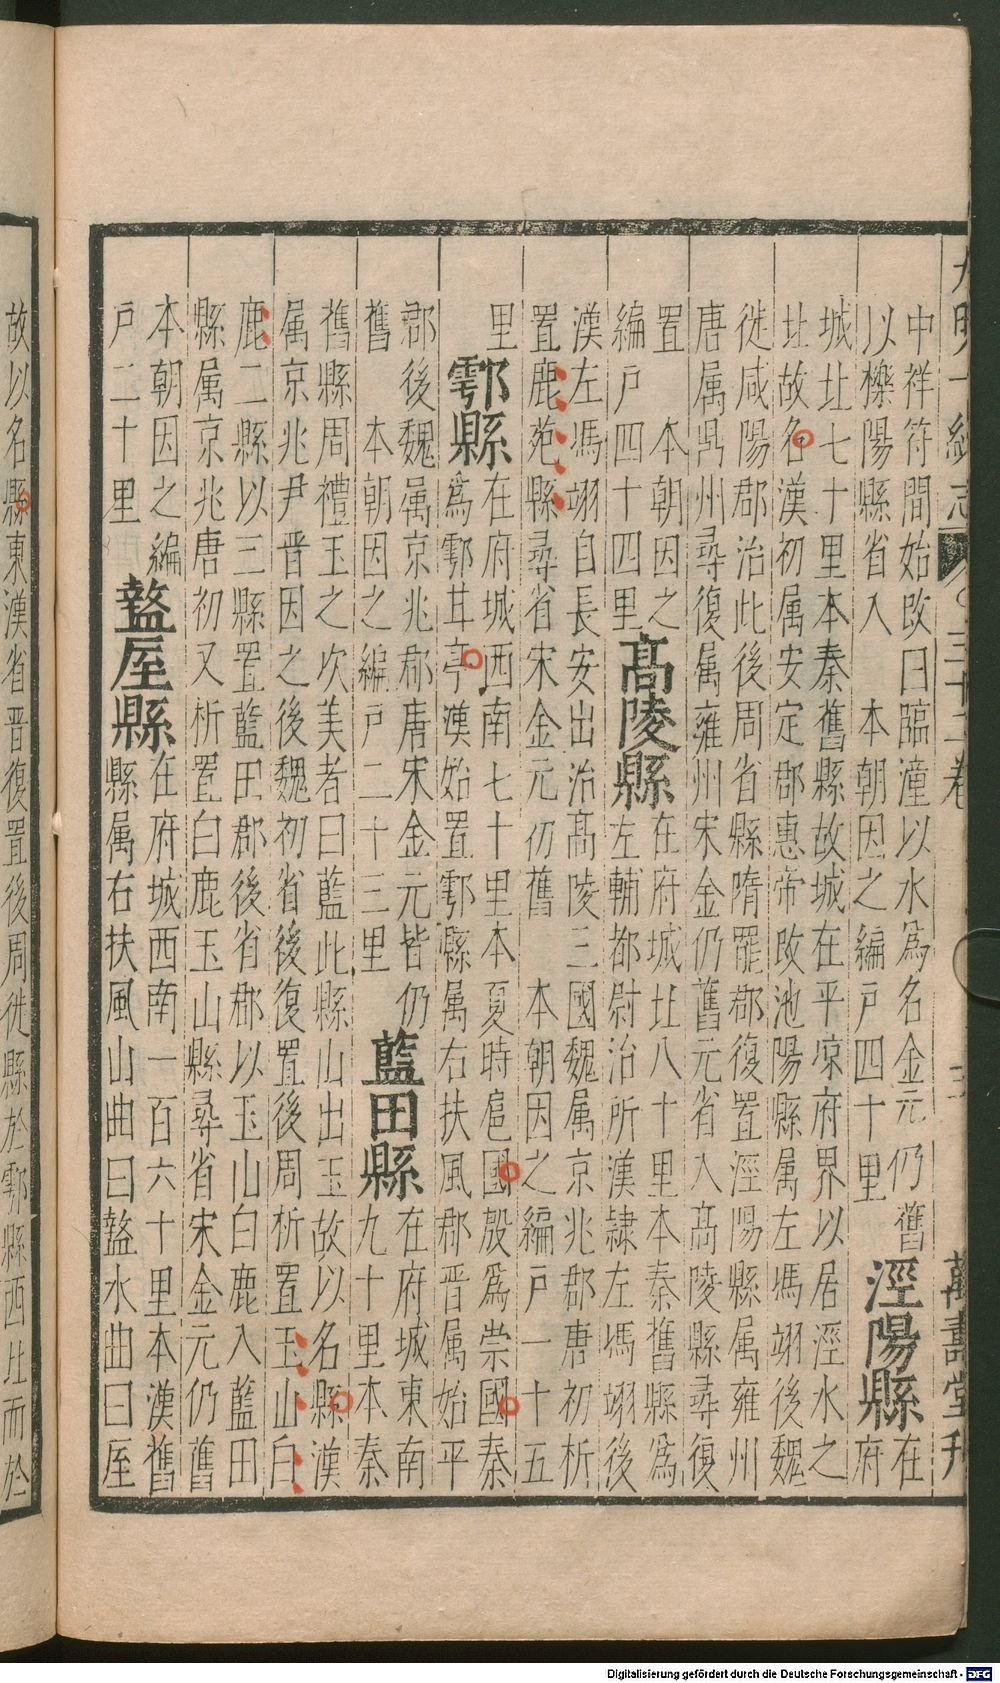 大明一統志 三十二卷 三 萬壽堂刊
中祥符間始改曰臨潼以水為名金元仍舊
以櫟陽縣省入 本朝因之編戶四十里
涇陽縣
在
府
城北七十里本秦舊縣故城在平凉府界以居涇水之
北故名漢初属安定郡惠帝改池陽縣属左馮翊後魏
徙咸陽郡治此後周省縣隋罷郡復置涇陽縣属雍州
唐属鼎州尋復属雍州宋金仍舊元省入高陵縣尋復
置 本朝因之
編戶四十四里
高陵縣
在府城北八十里本秦舊縣為
左輔都尉治所漢隷左馮翊後
漢左馮翊自長安出治高陵三國魏属京兆郡唐初析
置鹿苑縣尋省宋金元仍舊 本朝因之編戶一十五
里
鄠縣
在府城西南七十里本夏時扈國殷為崇國秦
為鄠甘亭漢始置鄠縣属右扶風郡晋属始平
郡後魏属京兆郡唐宋金元皆仍
舊 本朝因之編戶二十三里
藍田縣
在府城東南
九十里本秦
舊縣周禮玉之次美者曰藍此縣山出玉故以名縣漢
属京兆尹晋因之後魏初省後復置後周析置玉山白
鹿二縣以三縣置藍田郡後省郡以玉山白鹿入藍田
縣属京兆唐初又析置白鹿玉山縣尋省宋金元仍舊
本朝因之編
戶二十里
盩厔縣
在府城西南一百六十里本漢舊
縣属右扶風山曲曰盩水曲曰厔
故以名縣東漢省晋復置後周徙縣於鄠縣西北而於
Digitalisierung gefördert durch die Deutsche Forschungsgemeinschaft - DFG